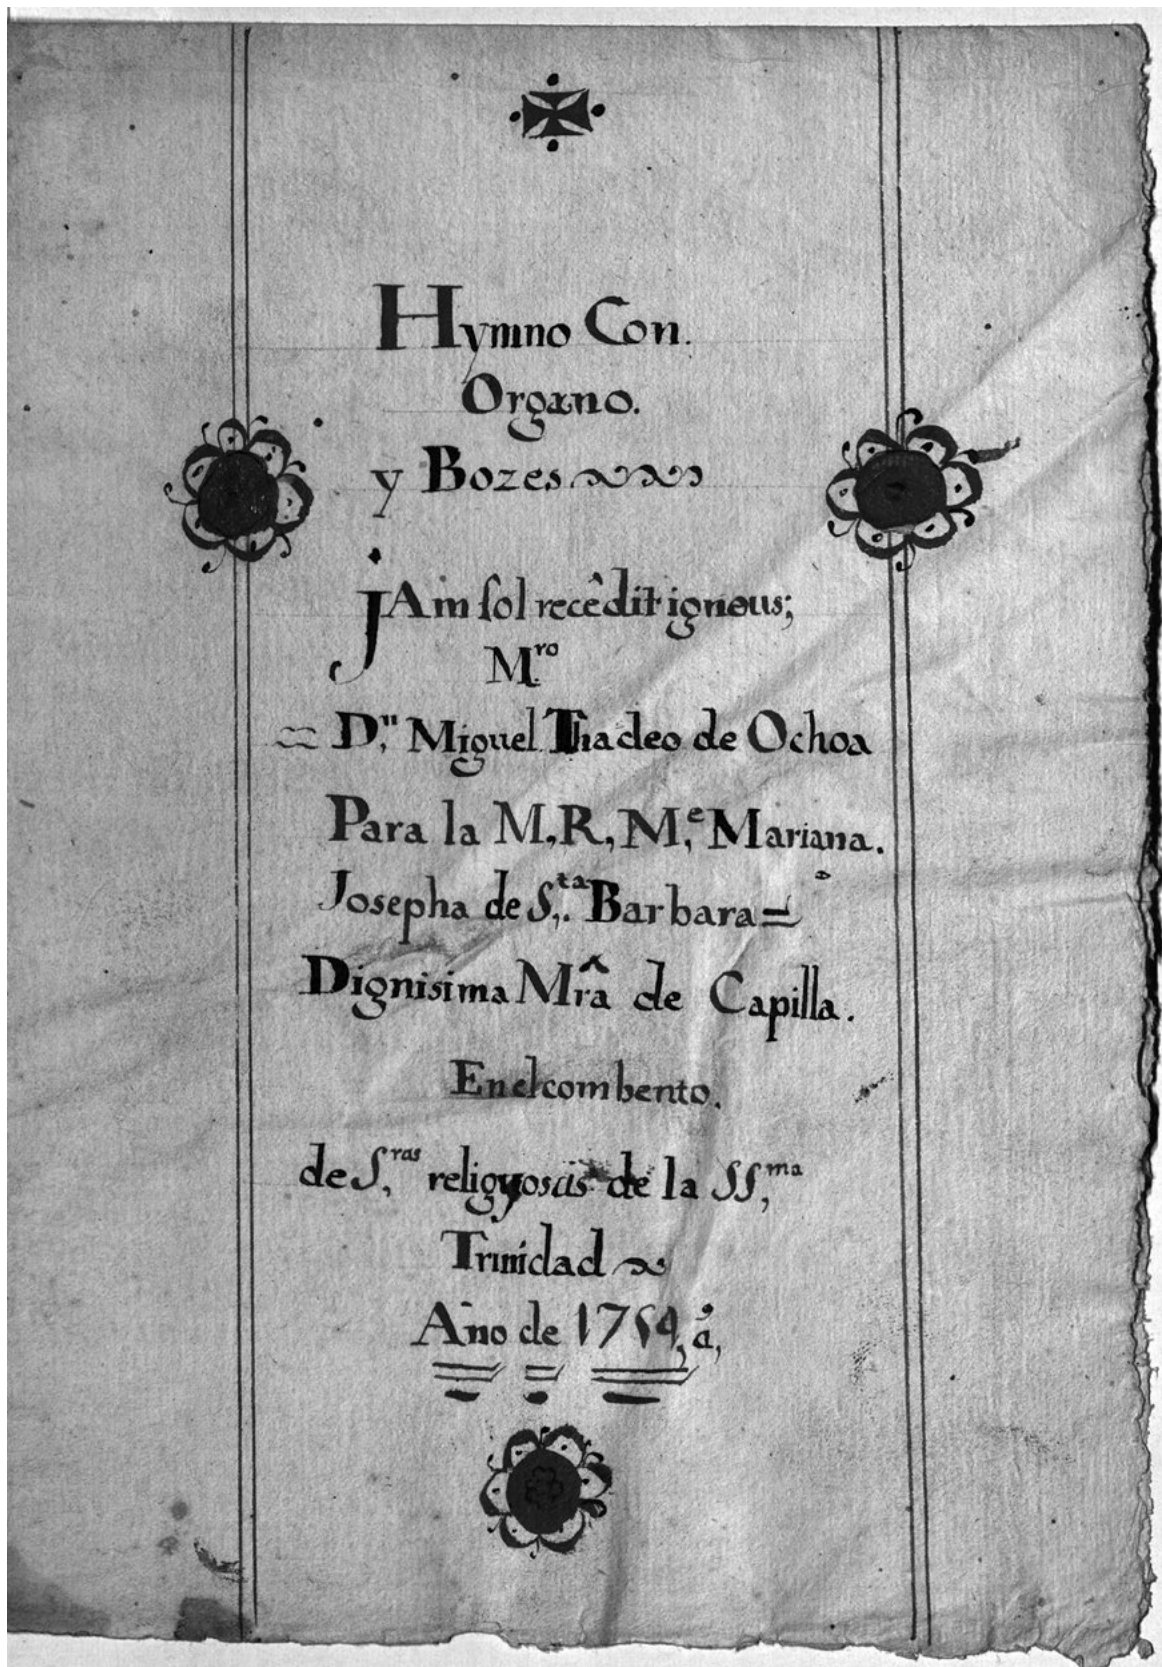 Hymno Con.
Organo.
y Bozes
jAm ſol recêdit igneus;
M.ro
D.n Miguel Thadeo de Ochoa
Para la M,R,M,e Mariana.
Josepha de S,.ta Barbara=
Dignisima Mrâ de Capilla.
En el combento.
de S,ras religyosas de la SS,ma
Trinidad
Año de 1754, å,